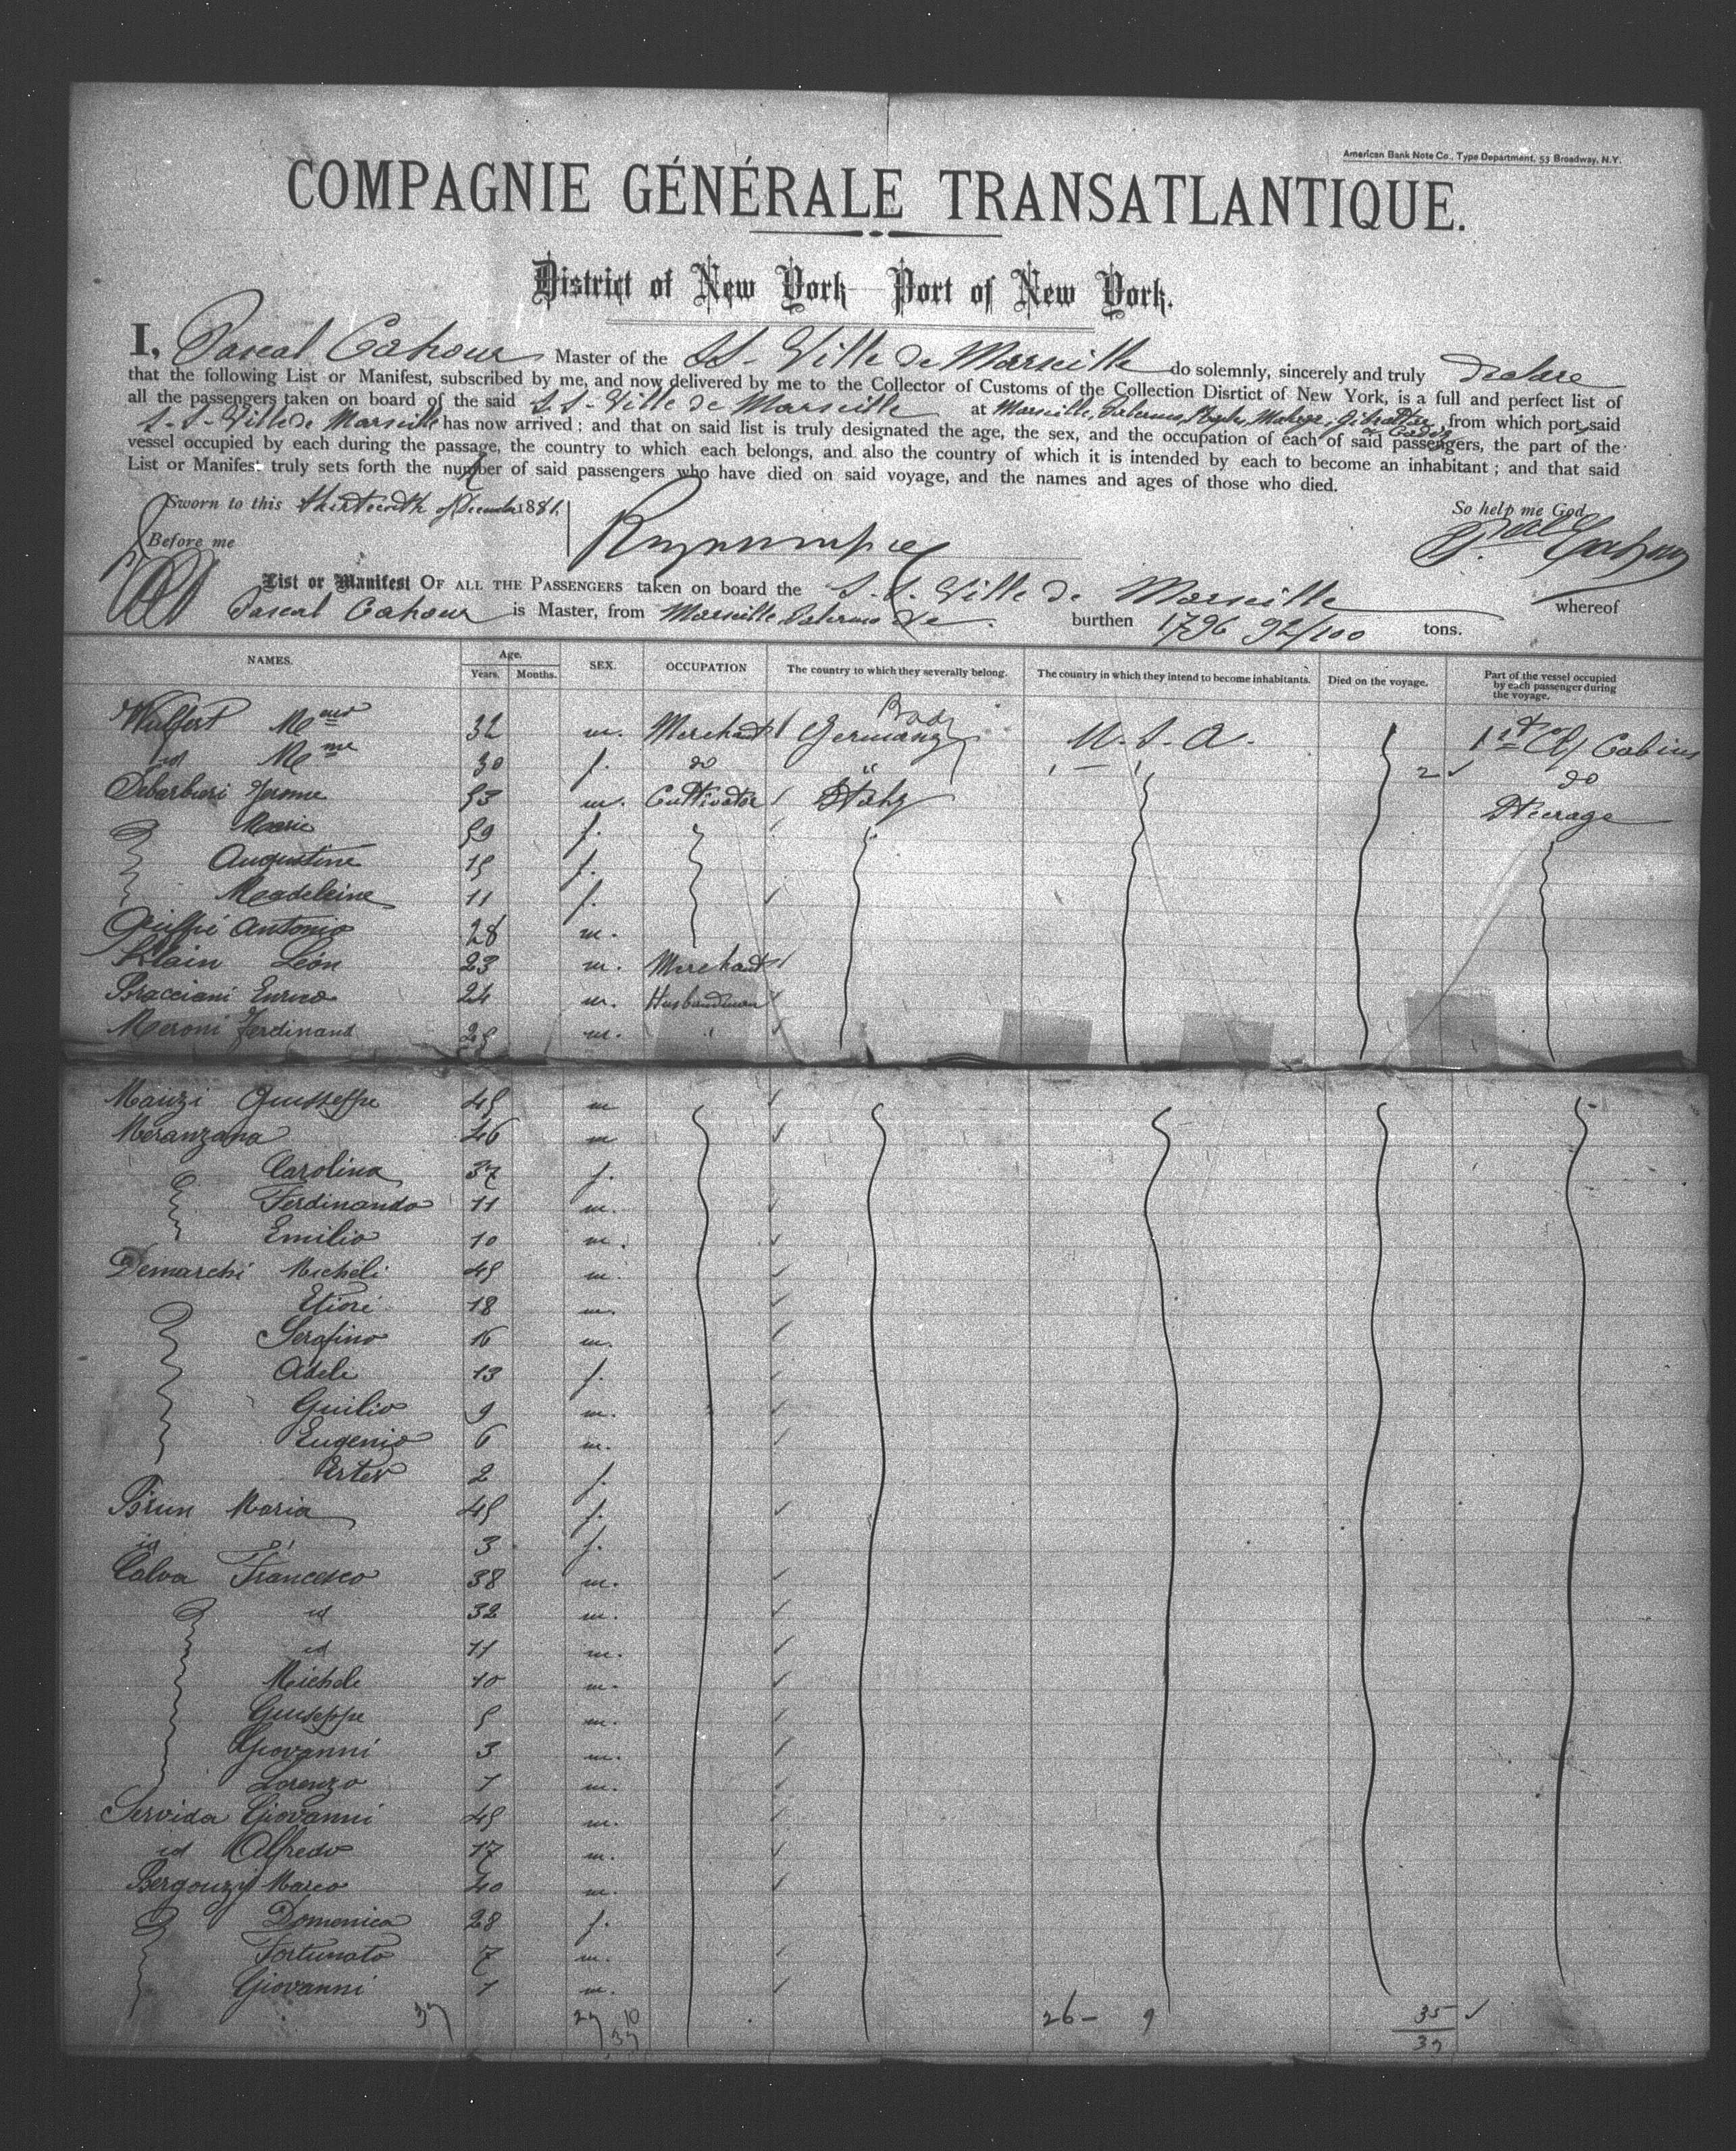 American Bank Note Co., Type Department, 53 Broadway, N.Y.
COMPAGNIE GÉNÉRALE TRANSATLANTIQUE.
District of New York Port of New York.
I, Pascal Cahour Master of the SS. Ville de Marseille do solemnly, sincerely and truly declare
that the following List or Manifest, subscribed by me, and now delivered by me to the Collector of Customs of the Collection Disrtict of New York, is a full and perfect list of
all the passengers taken on board of the said S.S. Ville de Marseille at Marseille, Palermo, Naples, Malaga, Gibraltar, from which port said
or Cadiz
S.S. Ville de Marseille has now arrived; and that on said list is truly designated the age, the sex, and the occupation of each of said passengers, the part of the
vessel occupied by each during the passage, the country to which each belongs, and also the country of which it is intended by each to become an inhabitant; and that said
List or Manifest truly sets forth the number of said passengers who have died on said voyage, and the names and ages of those who died.
Sworn to this thirteenth of December 1881. So help me God
Before me P. Cahour
List or Manifest OF ALL THE PASSENGERS taken on board the S.S. Ville de Marseille whereof
Pascal Cahour is Master, from Marseille Palermo &c. burthen 1796 92/100 tons.
NAMES. Age. Years. Months. SEX. OCCUPATION The country to which they severally belong. The country in which they intend to become inhabitants. Died on the voyage. Part of the vessel occupied by each passenger during the voyage.
Wulfert 32 m. Merchant Germany U.S.A. 1st Cl Cabins
id Mme 30 f. do " 2 ✓ do
Debarbieri Jerome 53 m. Cultivator Italy Steerage
Marie 59 f.
Augustine 15 f.
Magdeleine 11 f. ✓
Antonio 28 m.
Klain Léon 23 m. Merchant
Bracciani Enrico 24 m. Husbandman
Meroni Ferdinand 25 m. " ✓
Manzi Giusseppe 45 m ✓
Meranzana 46 m ✓
Carolina 37 f.
Ferdinando 11 m. ✓
Emilio 10 m. ✓
Demarchi Micheli 45 m. ✓
Etiori 18 m. ✓
Serafino 16 m. ✓
Adeli 13 f. ✓
Guilio 9 m. ✓
Eugenio 6 m. ✓
Ester 2 f.
Brun Maria 45 f. ✓
id 3 f.
Calva Francesco 38 m. ✓
id 32 m. ✓
id 11 m. ✓
Michele 10 m. ✓
Giuseppe 5 m. ✓
Giovanni 3 m. ✓
Lorenzo 1 m. ✓
Servida Giovanni 45 m. ✓
id Alfredo 17 m. ✓
Bergonzi Marco 40 m. ✓
Domenica 28 f.
Fortunato 7 m. ✓
Giovanni 1 m. ✓
37 27 10 26 - 9 35 ✓
37 37